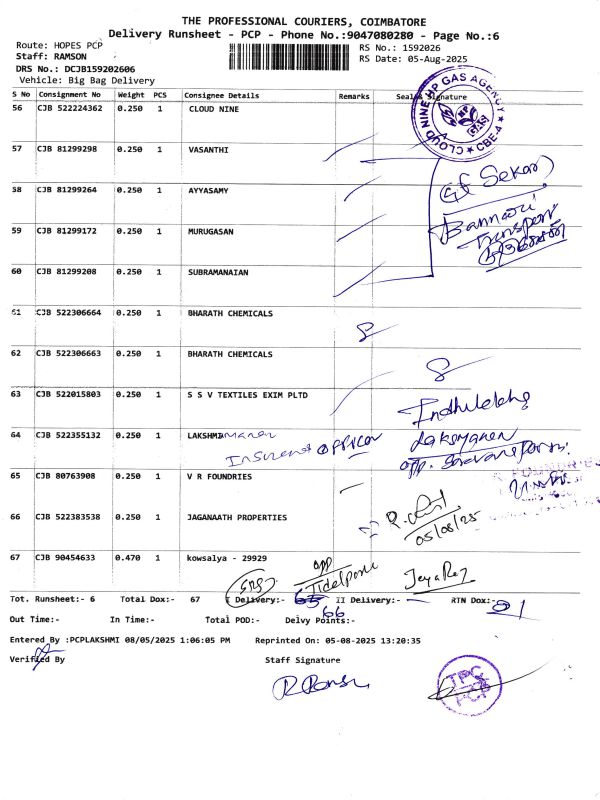 THE PROFESSIONAL COURIERS, COIMBATORE
Delivery Runsheet - PCP - Phone No.:9047080280 - Page No.:6
Route: HOPES PCP RS No.: 1592026
Staff: RAMSON RS Date: 05-Aug-2025
DRS No.: DCJB159202606
Vehicle: Big Bag Delivery
S No Consignment No Weight PCS Consignee Details Remarks Seal & Signature
56 CJB 522224362 0.250 1 CLOUD NINE
CLOUD NINE HP GAS AGENCY ★ CBE-4 ★
57 CJB 81299298 0.250 1 VASANTHI
58 CJB 81299264 0.250 1 AYYASAMY
Sekar)
59 CJB 81299172 0.250 1 MURUGASAN
Bannari
Transport
60 CJB 81299208 0.250 1 SUBRAMANAIAN
61 CJB 522306664 0.250 1 BHARATH CHEMICALS
62 CJB 522306663 0.250 1 BHARATH CHEMICALS
63 CJB 522015803 0.250 1 S S V TEXTILES EXIM PLTD
64 CJB 522355132 0.250 1 LAKSHMI
opp.
65 CJB 80763908 0.250 1 V R FOUNDRIES
66 CJB 522383538 0.250 1 JAGANAATH PROPERTIES
05/08/25
67 CJB 90454633 0.470 1 kowsalya - 29929
opp
Tidelpark
JeyaRaj
Tot. Runsheet:- 6 Total Dox:- 67 I Delivery:- 65 II Delivery:- RTN Dox:- 01
66
Out Time:- In Time:- Total POD:- Delvy Points:-
Entered By :PCPLAKSHMI 08/05/2025 1:06:05 PM Reprinted On: 05-08-2025 13:20:35
Verified By Staff Signature
TPC
PCP